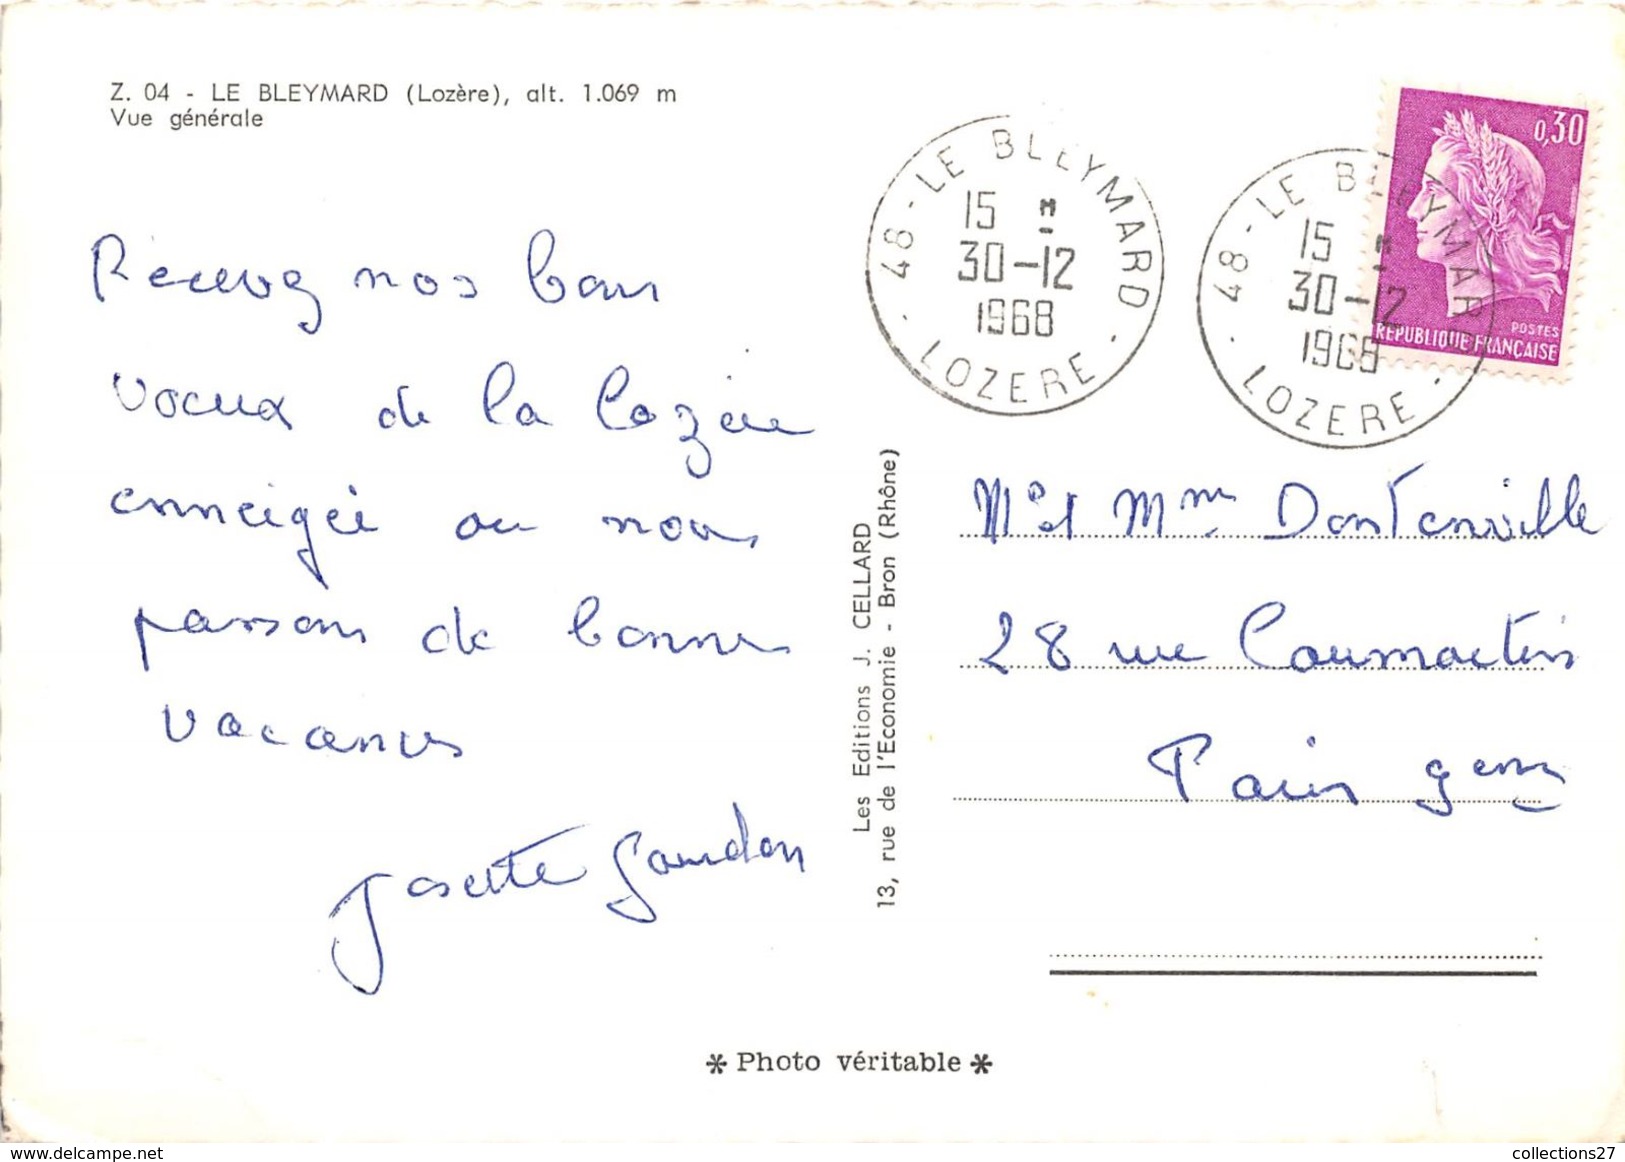 Z. 04 - LE BLEYMARD (Lozère), alt. 1.069 m
Vue générale
Recevez nos bons
voeux de la Lozère
enneigée ou nous
passons de bonnes
vacances
Josette Gourdon
Les Editions J. CELLARD
13, rue de l'Economie - Bron (Rhône)
48 - LE BLEYMARD
15 H
30-12
1968
LOZERE
48 - LE BLEYMARD
15 H
30-12
1968
LOZERE
0,30
POSTES
REPUBLIQUE FRANÇAISE
Mr et Mme Dontenville
28 rue Caumartin
Paris 9em
* Photo véritable *
collections27